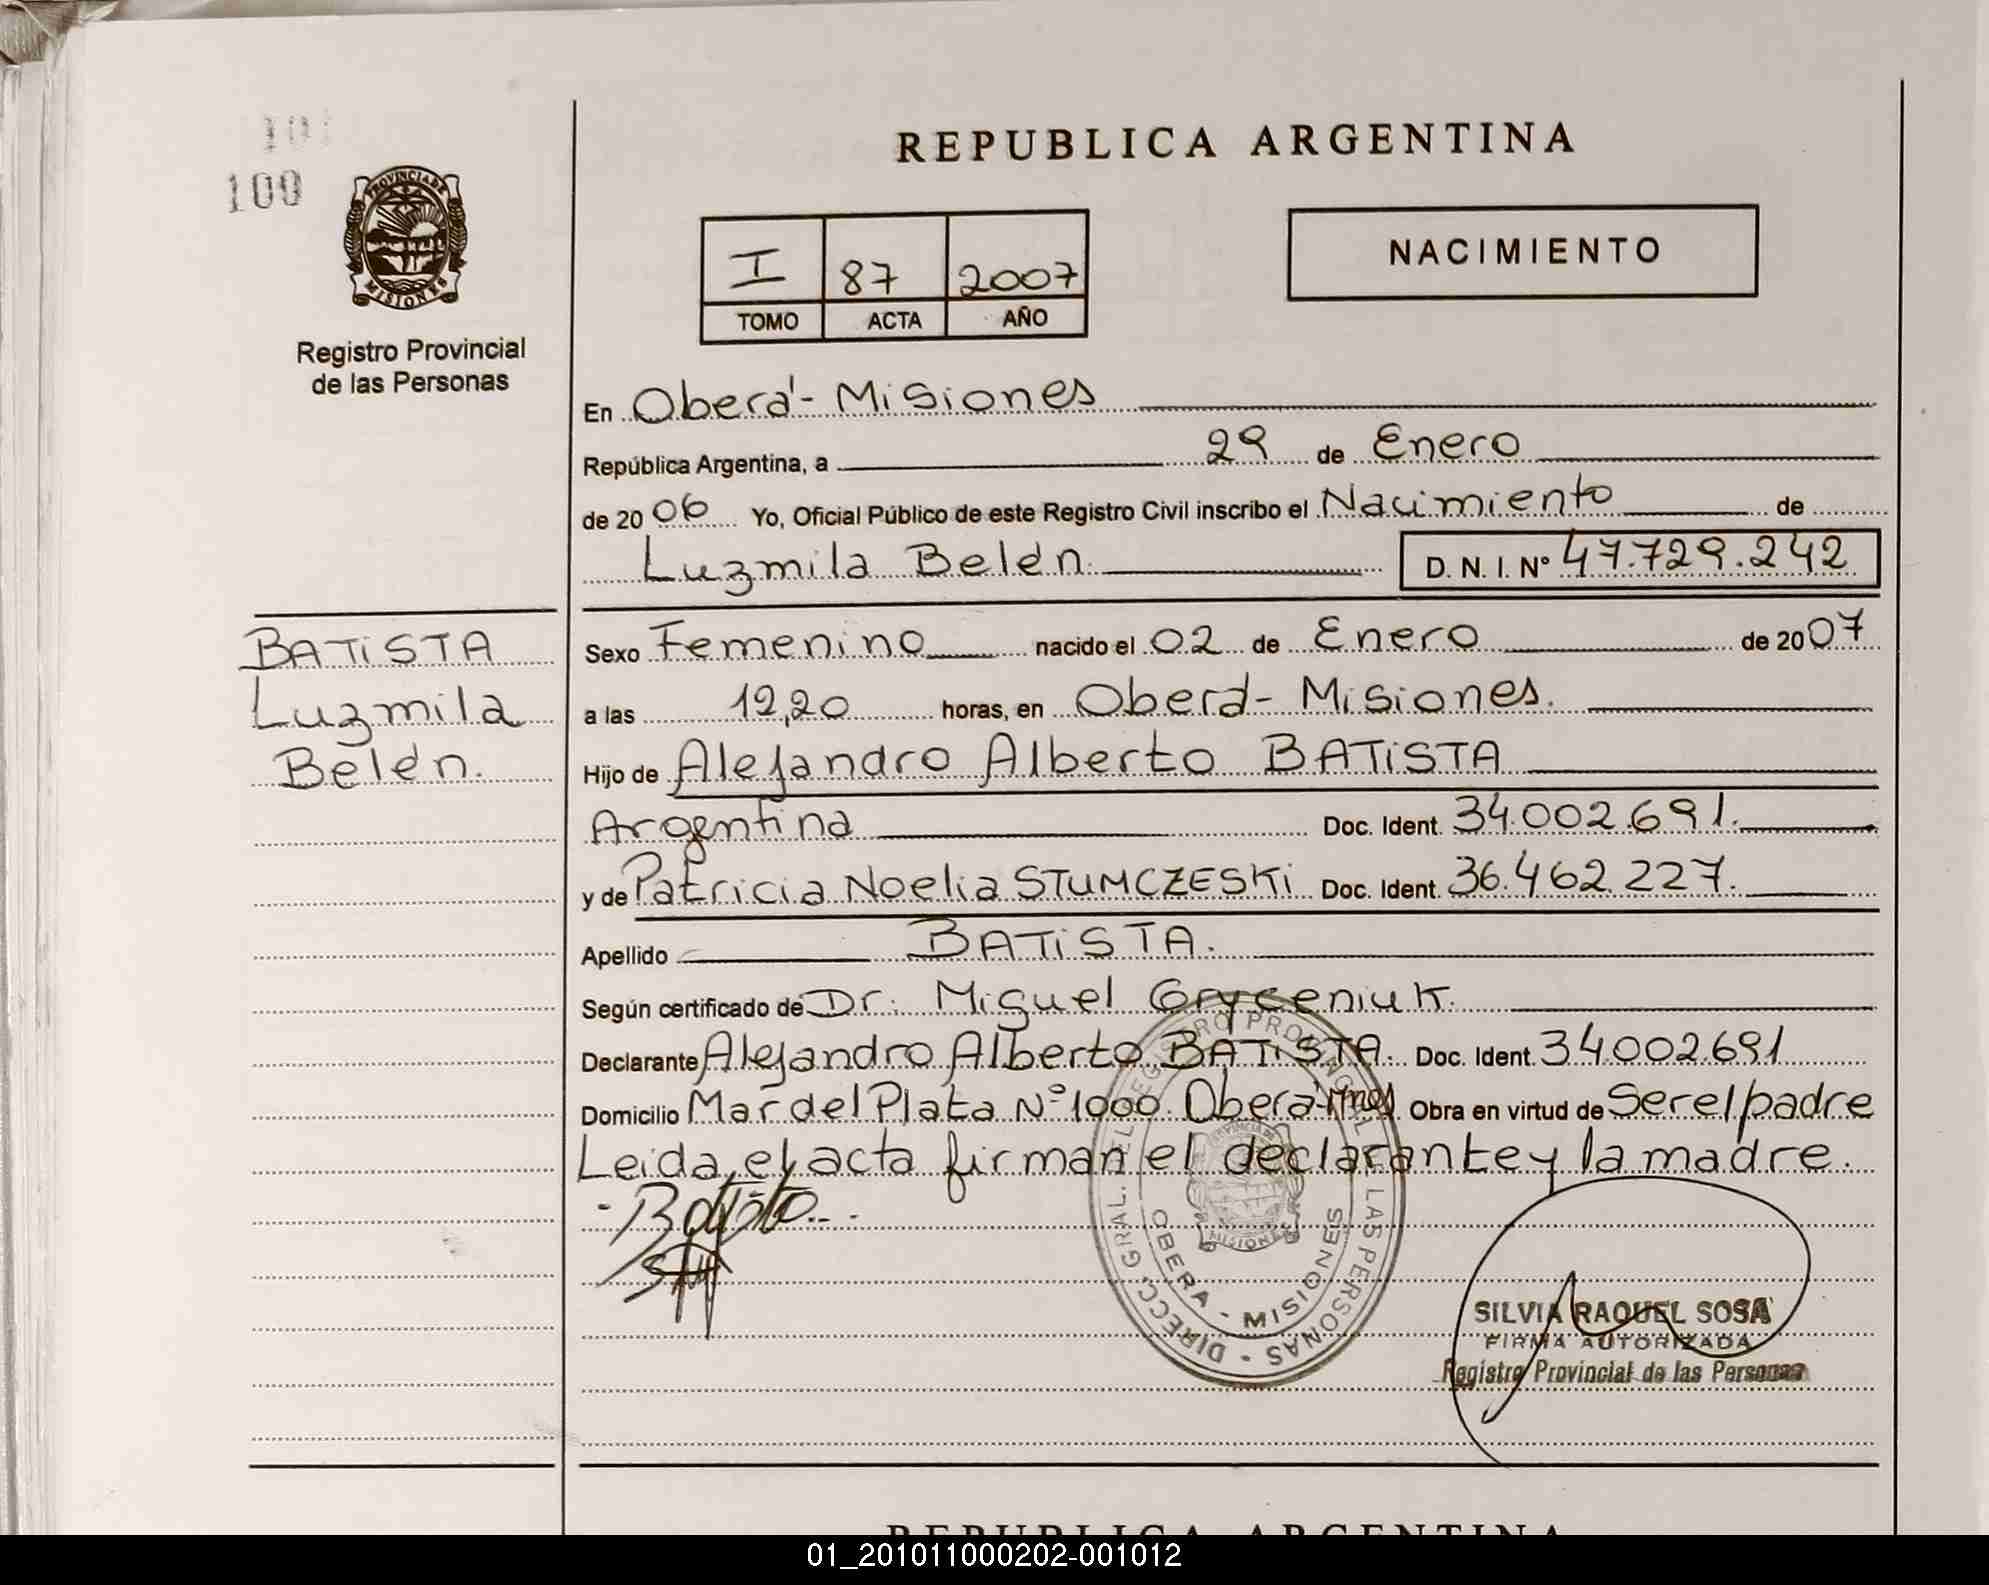 100
PROVINCIA DE
MISIONES
Registro Provincial
de las Personas
REPUBLICA ARGENTINA
I 87 2007
TOMO ACTA AÑO
NACIMIENTO
En Oberá - Misiones
República Argentina, a 29 de Enero
de 20 06 Yo, Oficial Público de este Registro Civil inscribo el Nacimiento de
Luzmila Belén D. N. I. Nº 47.729.242
BATISTA
Luzmila
Belén.
Sexo Femenino nacido el 02 de Enero de 20 07
a las 12,20 horas, en Oberá - Misiones.
Hijo de Alejandro Alberto BATISTA
Argentina Doc. Ident. 34.002.691.
y de Patricia Noelia STUMCZESKI Doc. Ident. 36.462.227.
Apellido BATISTA.
Según certificado de Dr. Miguel Gryceniuk.
Declarante Alejandro Alberto BATISTA. Doc. Ident. 34.002.691
Domicilio Mar del Plata Nº 1000. Oberá Mnes. Obra en virtud de Ser el padre
Leida el acta firman el declarante y la madre.
Batista
DIRECC. GRAL. EL REGISTRO PROVINCIAL DE LAS PERSONAS
OBERA - MISIONES
SILVIA RAQUEL SOSA
FIRMA AUTORIZADA
Registro Provincial de las Personas
REPUBLICA ARGENTINA
01_201011000202-001012